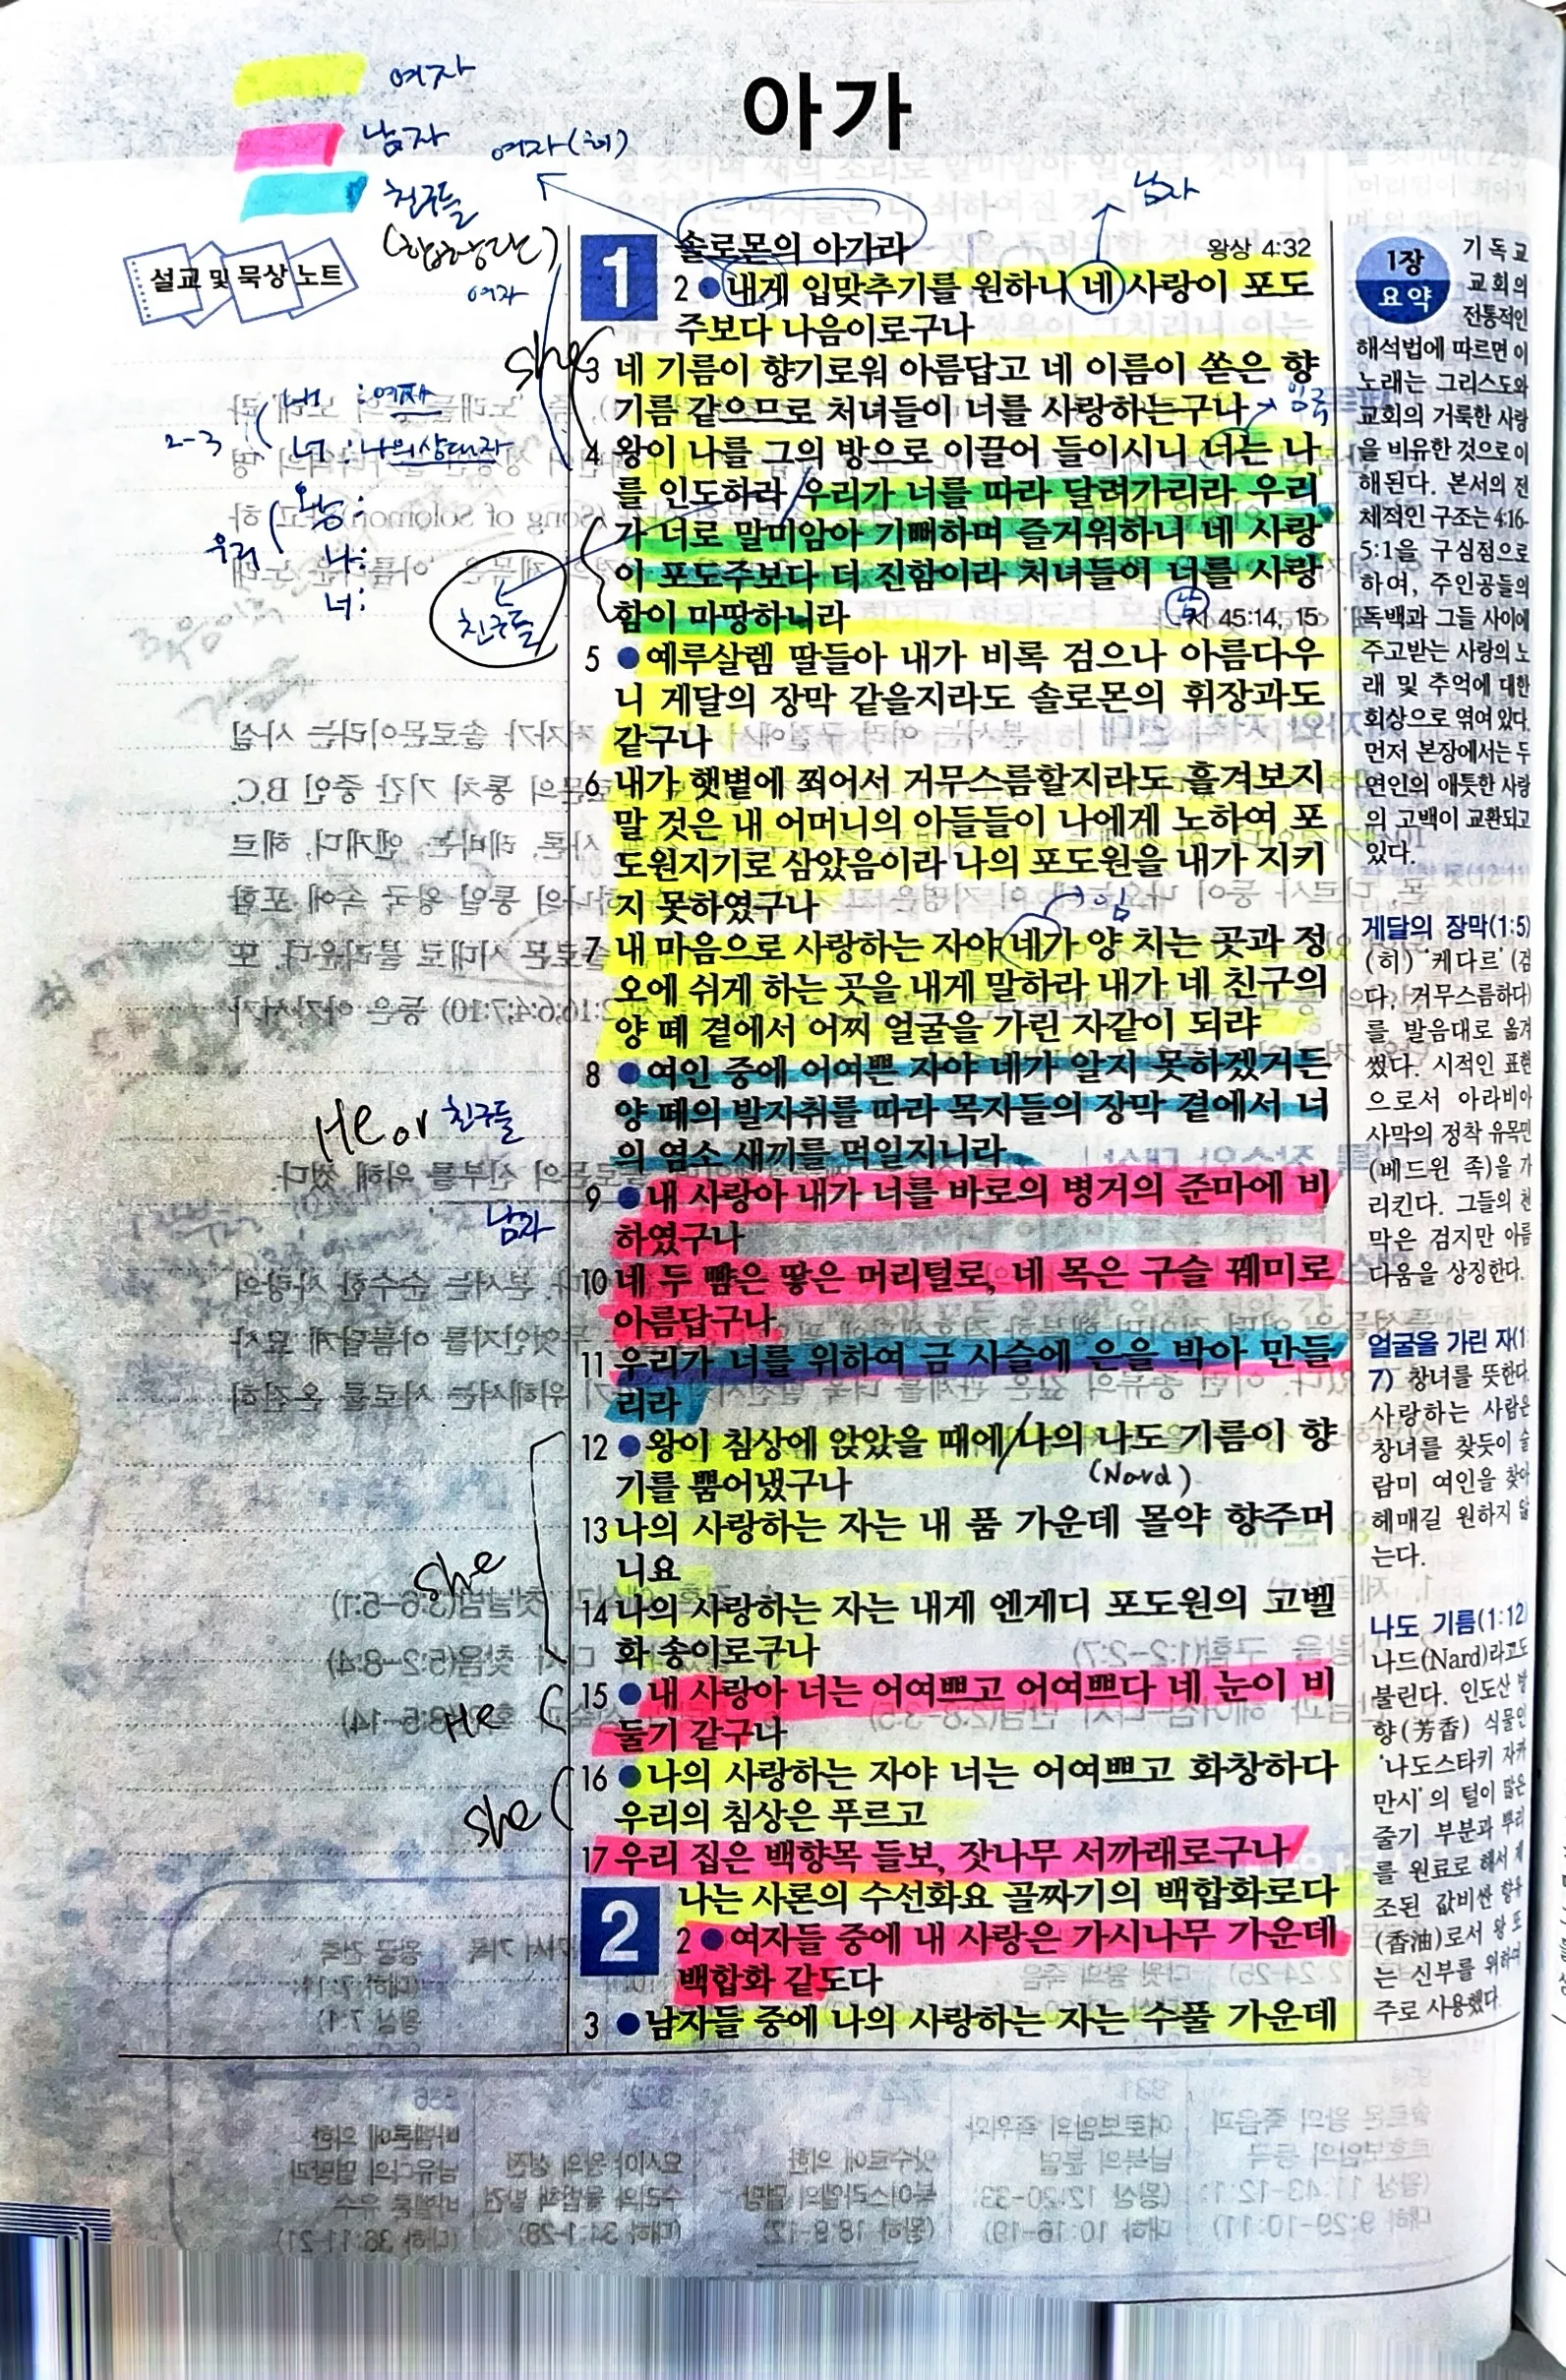 여자
남자
친구들
(합창단)
여자(히)
남자
아가
설교 및 묵상 노트
여자
she
2-3
내 : 여자
너 : 나의 상대자
우리
왕:
나:
너:
친구들
He or 친구들
남자
she
He
she
1
솔로몬의 아가라 왕상 4:32
2 ●내게 입맞추기를 원하니 네 사랑이 포도
주보다 나음이로구나
3 네 기름이 향기로워 아름답고 네 이름이 쏟은 향
기름 같으므로 처녀들이 너를 사랑하는구나
4 왕이 나를 그의 방으로 이끌어 들이시니 너는 나
를 인도하라 우리가 너를 따라 달려가리라 우리
가 너로 말미암아 기뻐하며 즐거워하니 네 사랑
이 포도주보다 더 진함이라 처녀들이 너를 사랑
함이 마땅하니라
남
45:14, 15
5 ●예루살렘 딸들아 내가 비록 검으나 아름다우
니 게달의 장막 같을지라도 솔로몬의 휘장과도
같구나
6 내가 햇볕에 쬐어서 거무스름할지라도 흘겨보지
말 것은 내 어머니의 아들들이 나에게 노하여 포
도원지기로 삼았음이라 나의 포도원을 내가 지키
지 못하였구나
임
7 내 마음으로 사랑하는 자야 네가 양 치는 곳과 정
오에 쉬게 하는 곳을 내게 말하라 내가 네 친구의
양 떼 곁에서 어찌 얼굴을 가린 자같이 되랴
8 ●여인 중에 어여쁜 자야 네가 알지 못하겠거든
양 떼의 발자취를 따라 목자들의 장막 곁에서 너
의 염소 새끼를 먹일지니라
9 ●내 사랑아 내가 너를 바로의 병거의 준마에 비
하였구나
10 네 두 뺨은 땋은 머리털로, 네 목은 구슬 꿰미로
아름답구나
11 우리가 너를 위하여 금 사슬에 은을 박아 만들
리라
12 ●왕이 침상에 앉았을 때에 나의 나도 기름이 향
기를 뿜어냈구나
(Nard)
13 나의 사랑하는 자는 내 품 가운데 몰약 향주머
니요
14 나의 사랑하는 자는 내게 엔게디 포도원의 고벨
화 송이로구나
15 ●내 사랑아 너는 어여쁘고 어여쁘다 네 눈이 비
둘기 같구나
16 ●나의 사랑하는 자야 너는 어여쁘고 화창하다
우리의 침상은 푸르고
17 우리 집은 백향목 들보, 잣나무 서까래로구나
2
나는 사론의 수선화요 골짜기의 백합화로다
2 ●여자들 중에 내 사랑은 가시나무 가운데
백합화 같도다
3 ●남자들 중에 나의 사랑하는 자는 수풀 가운데
1장
요약
기독교
교회의
전통적인
해석법에 따르면 이
노래는 그리스도와
교회의 거룩한 사랑
을 비유한 것으로 이
해된다. 본서의 전
체적인 구조는 4:16-
5:1을 구심점으로
하여, 주인공들의
독백과 그들 사이에
주고받는 사랑의 노
래 및 추억에 대한
회상으로 엮여 있다.
먼저 본장에서는 두
연인의 애틋한 사랑
의 고백이 교환되고
있다.
게달의 장막(1:5)
(히) '케다르'(검
다, 거무스름하다)
를 발음대로 옮겨
썼다. 시적인 표현
으로서 아라비아
사막의 정착 유목민
(베드윈 족)을 가
리킨다. 그들의 천
막은 검지만 아름
다움을 상징한다.
얼굴을 가린 자(1:
7) 창녀를 뜻한다.
사랑하는 사람은
창녀를 찾듯이 술
람미 여인을 찾아
헤매길 원하지 않
는다.
나도 기름(1:12)
나드(Nard)라고도
불린다. 인도산 방
향(芳香) 식물인
'나도스타키 자타
만시'의 털이 많은
줄기 부분과 뿌리
를 원료로 해서 제
조된 값비싼 향유
(香油)로서 왕 또
는 신부를 위하여
주로 사용했다.